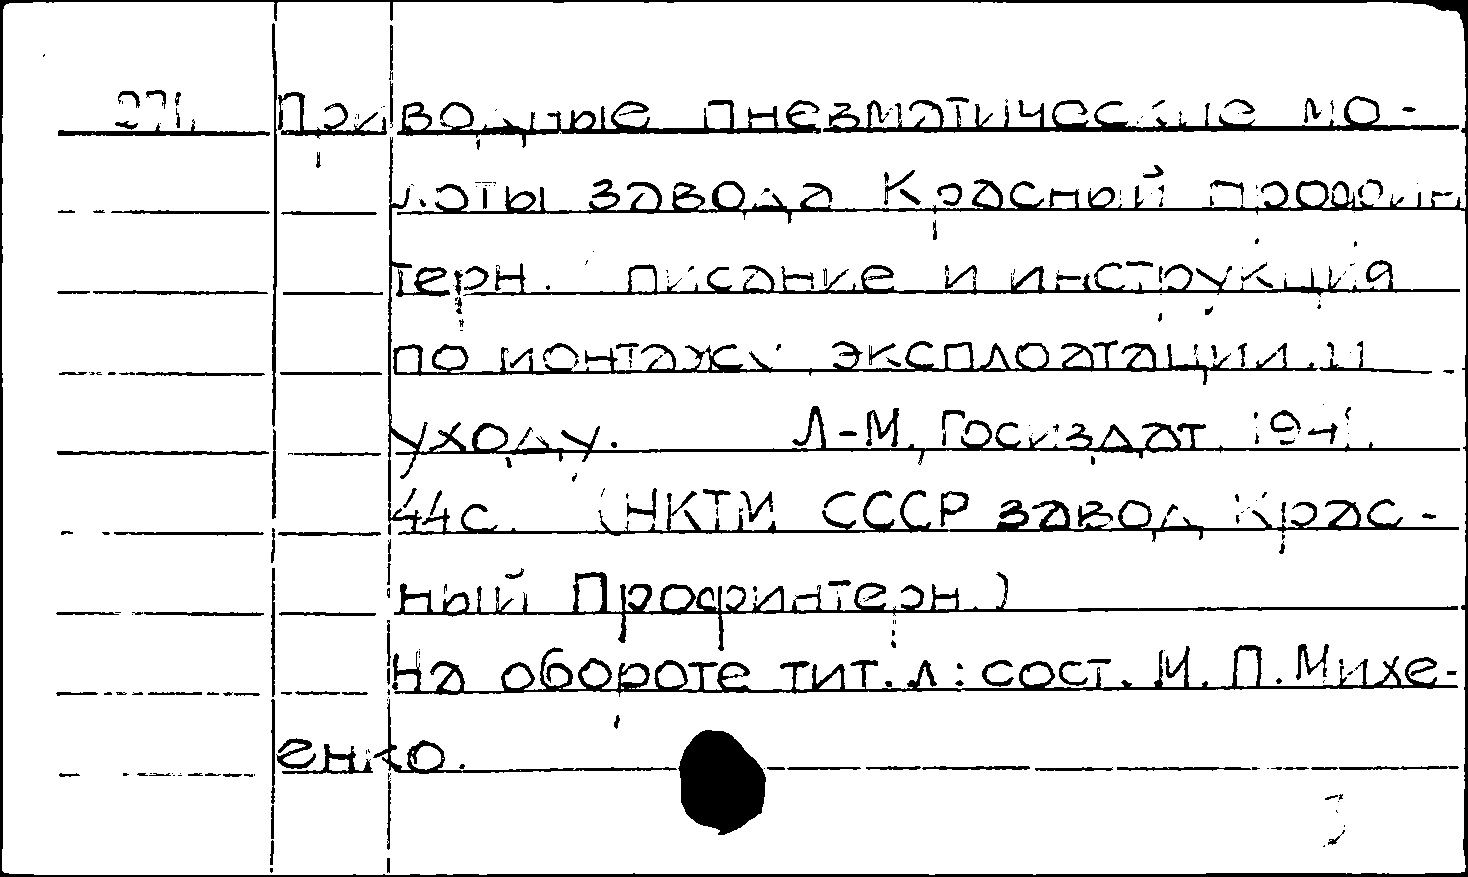 271. Приводные пневматические мо-
лоты завода Красный профин
терн. Описание и инструкция
по монтажу эксплоатации и
уходу. Л-М, Госиздат, 1941.
44с. (НКТМ СССР завод Крас-
ный Профинтерн.)
На обороте тит. л: сост. М. П. Михе-
енко.